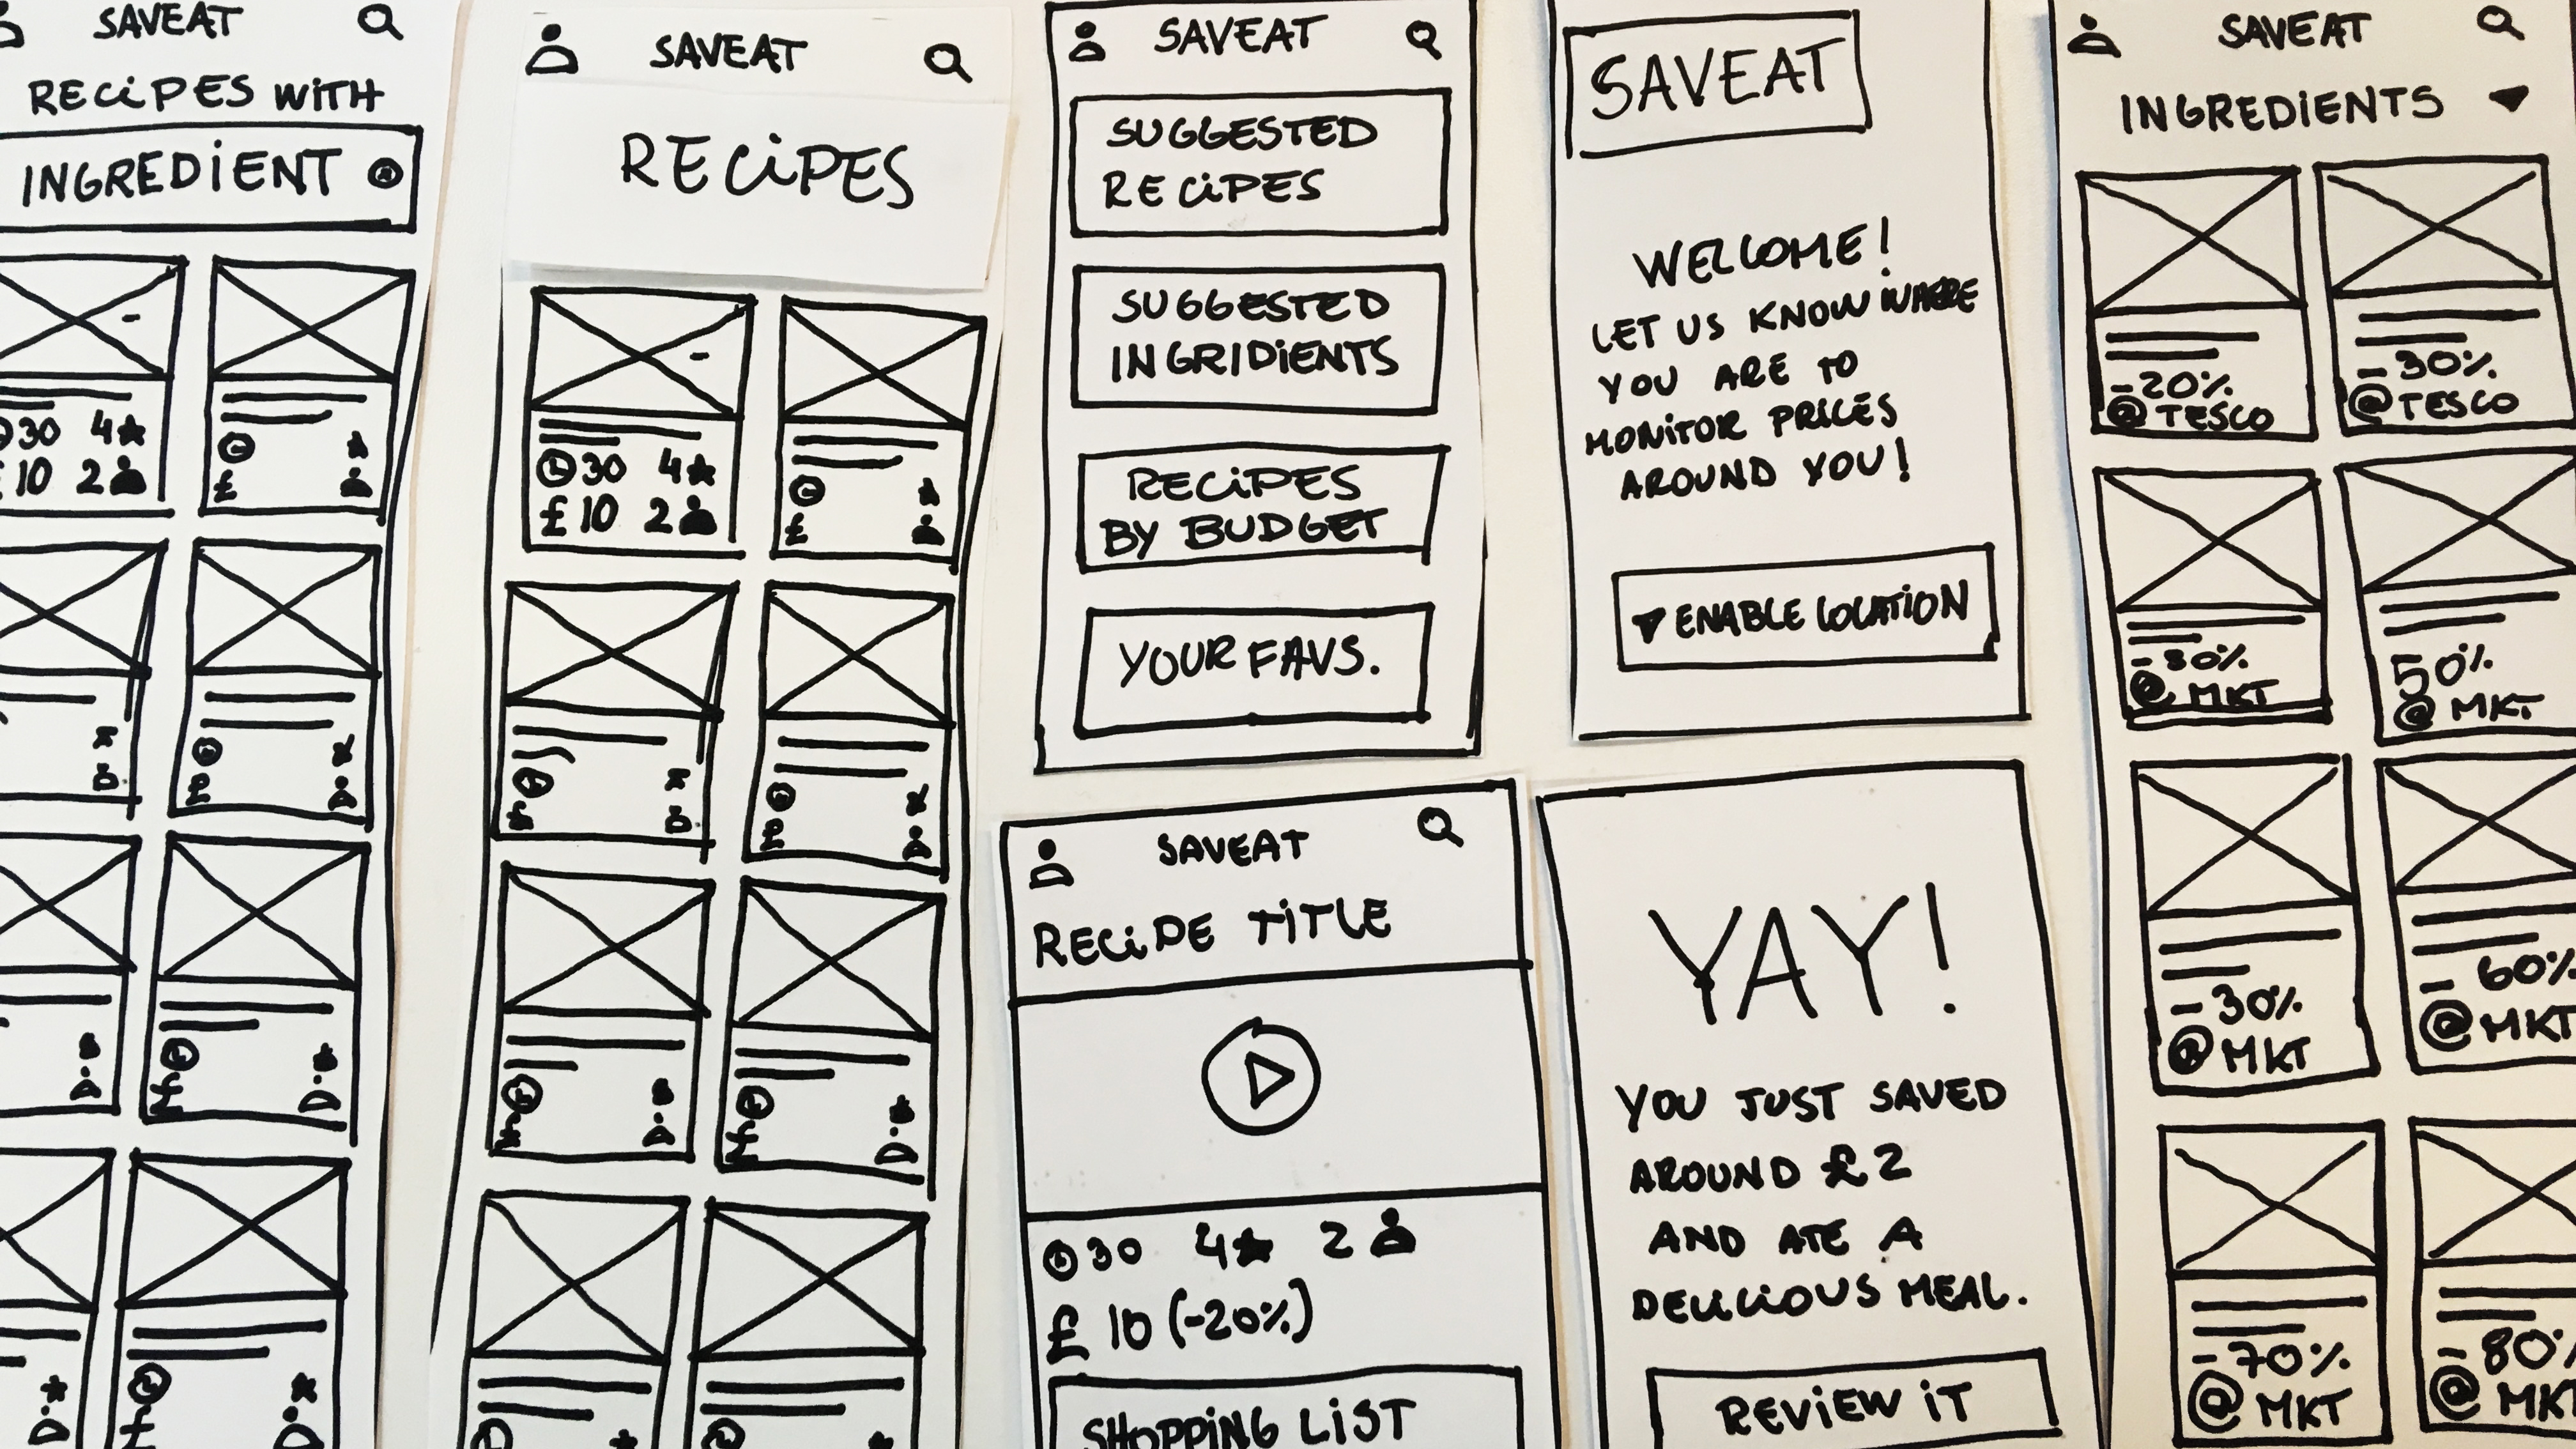 SAVEAT
RECIPES WITH
INGREDIENT
30 4
£10 2
£
£
£
£
SAVEAT
RECIPES
30 4
£10 2
£
£
£
SAVEAT
SUGGESTED
RECIPES
SUGGESTED
INGRIDIENTS
RECIPES
BY BUDGET
YOUR FAVS.
SAVEAT
RECIPE TITLE
30 4 2
£10 (-20%)
SHOPPING LIST
SAVEAT
WELCOME!
LET US KNOW WHERE
YOU ARE TO
MONITOR PRICES
AROUND YOU!
ENABLE LOCATION
YAY!
YOU JUST SAVED
AROUND £2
AND ATE A
DELICIOUS MEAL.
REVIEW IT
SAVEAT
INGREDIENTS
-20%
@TESCO
-30%
@TESCO
@ MKT
50%
@ MKT
-30%
@ MKT
- 60%
@MKT
-70%
@ MKT
-80%
@ MKT